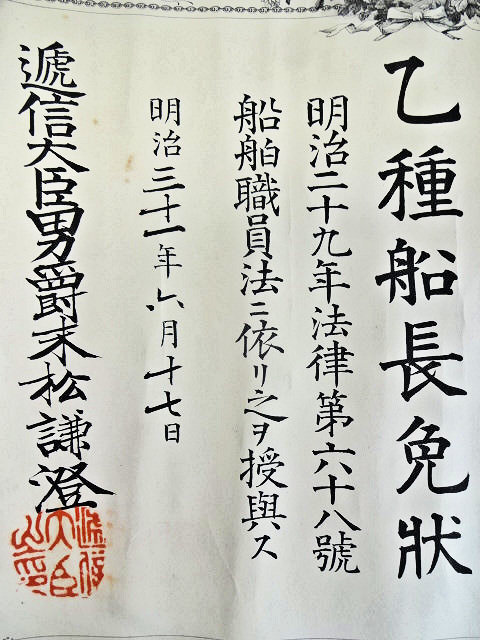 乙種船長免狀
明治二十九年法律第六十八號
船舶職員法ニ依リ之ヲ授與ス
明治三十一年六月十七日
遞信大臣男爵末松謙澄
遞信大臣之印